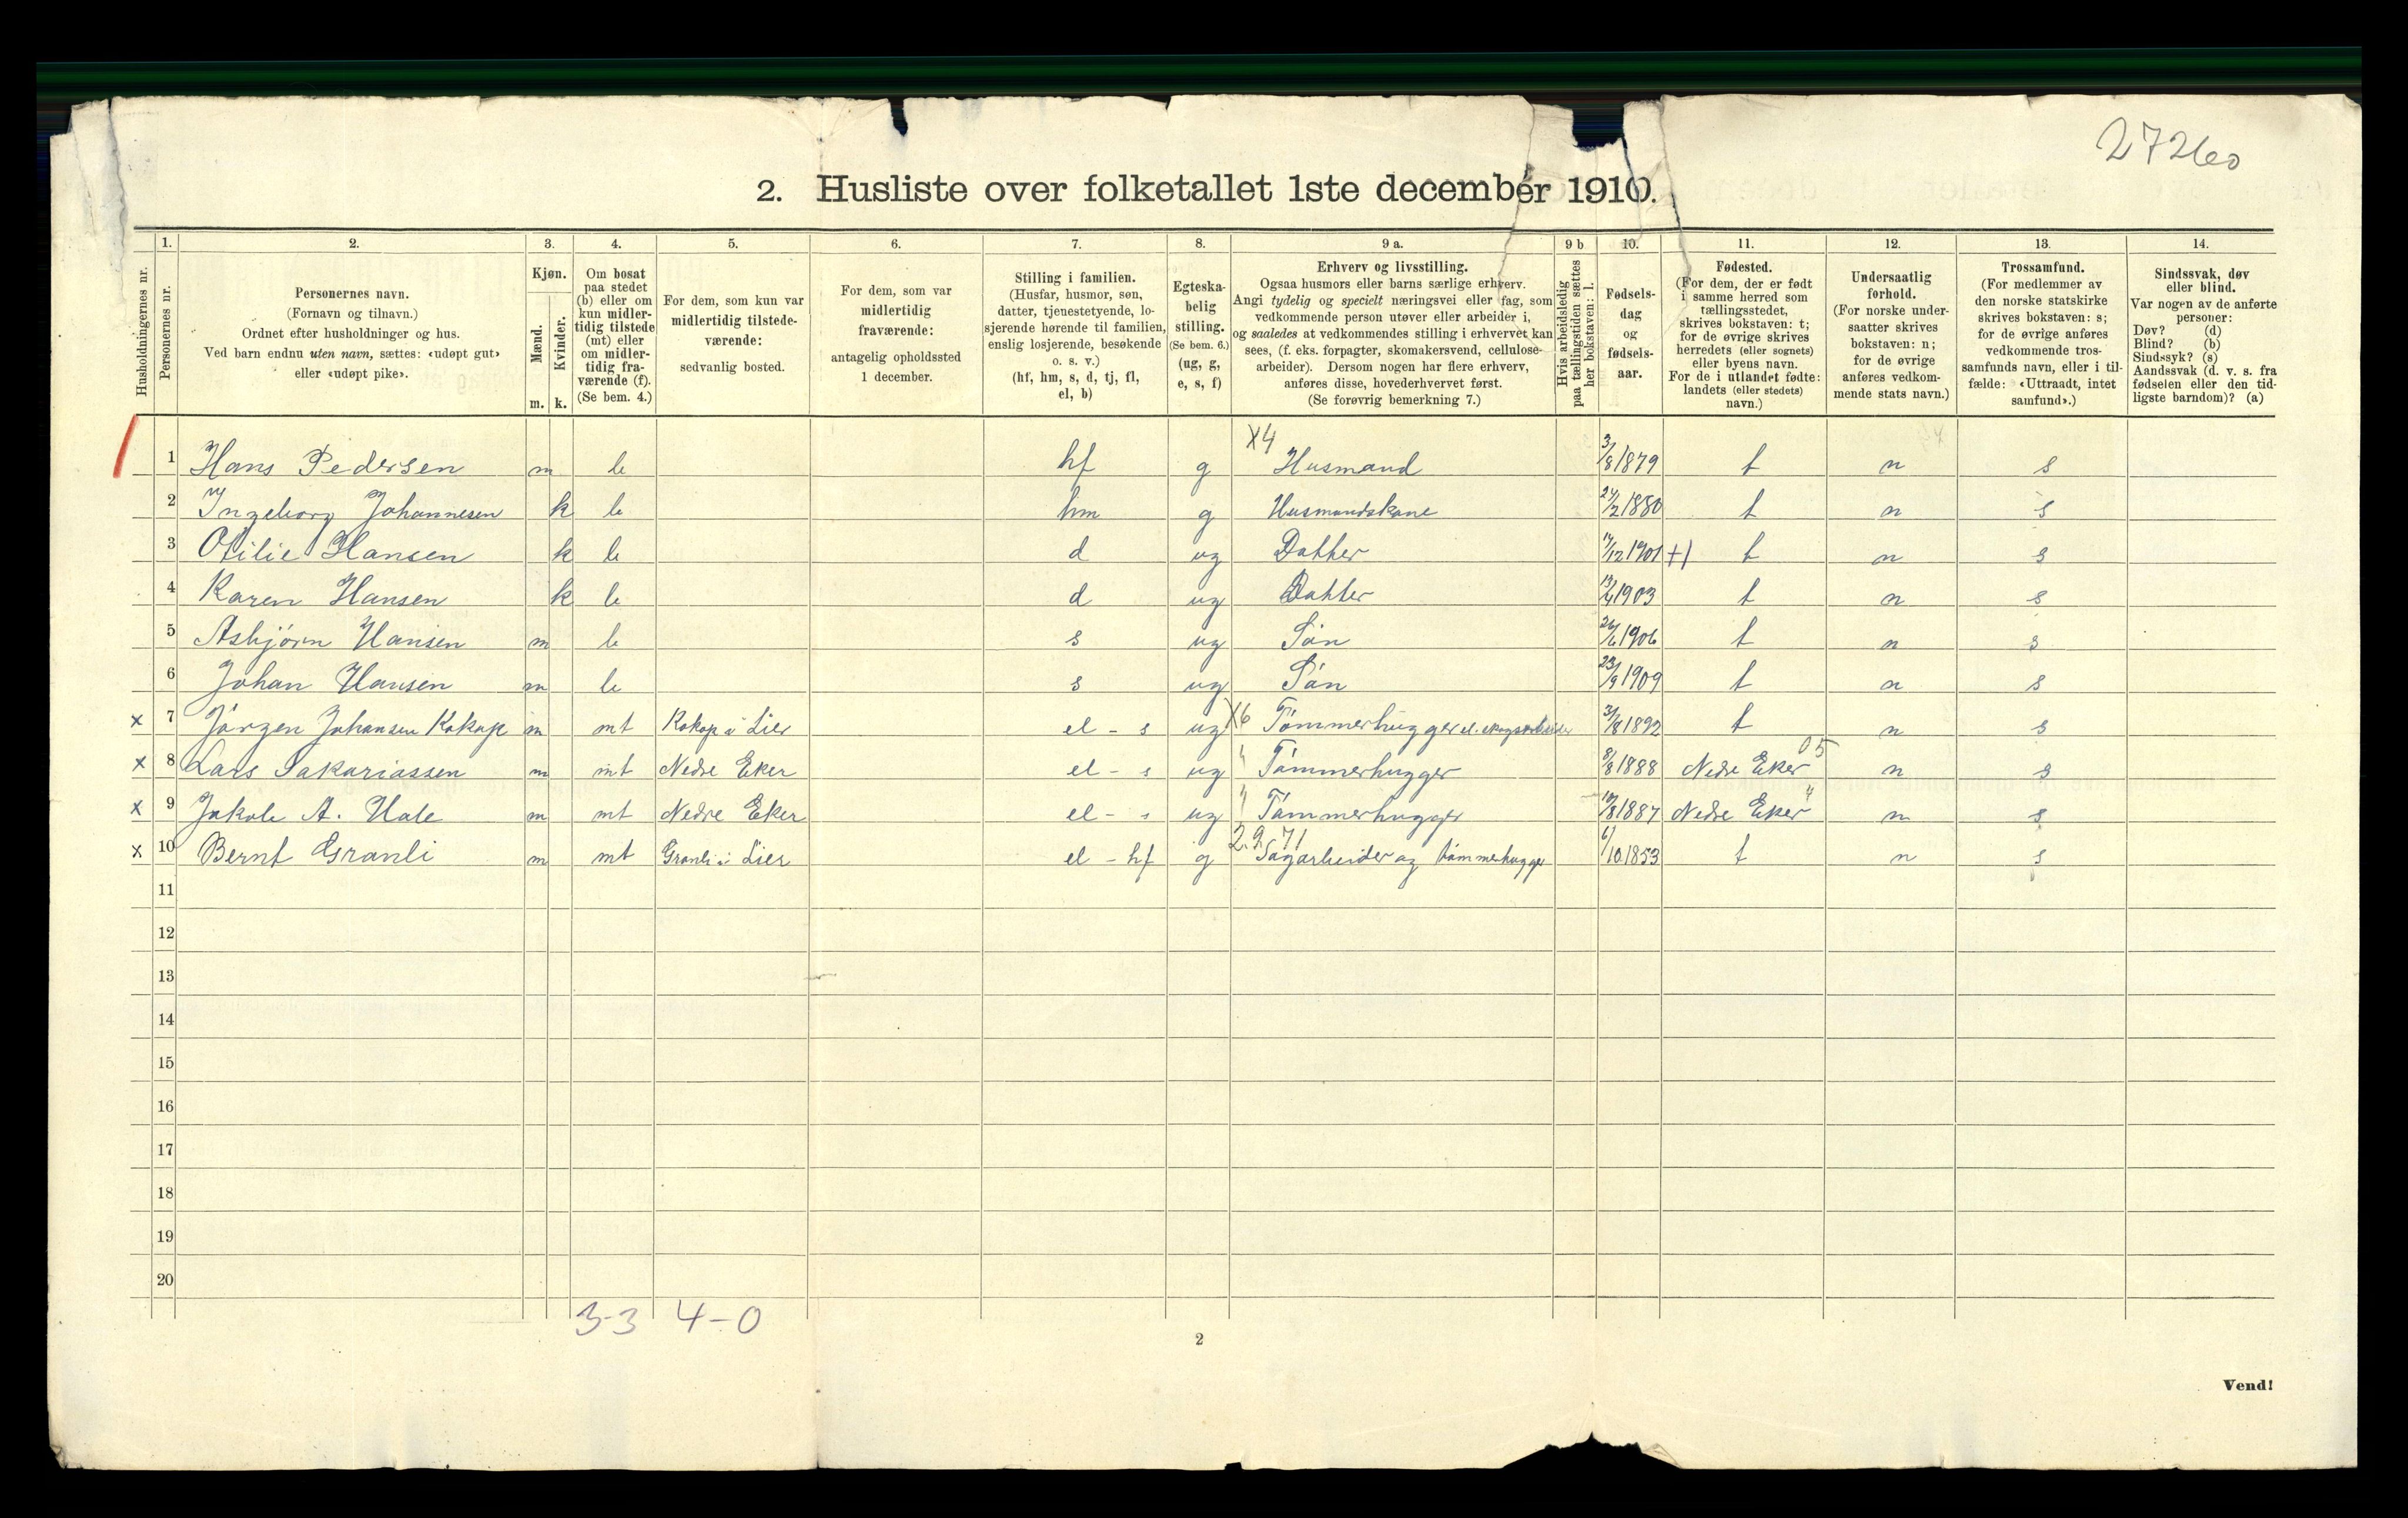 27260
2. Husliste over folketallet 1ste december 1910.
Husholdningernes nr.
1.
Personernes nr.
2.
Personernes navn.
(Fornavn og tilnavn.)
Ordnet efter husholdninger og hus.
Ved barn endnu uten navn, sættes: «udøpt gut»
eller «udøpt pike».
3.
Kjøn.
Mænd.
Kvinder.
m. k.
4.
Om bosat
paa stedet
(b) eller om
kun midler-
tidig tilstede
(mt) eller
om midler-
tidig fra-
værende (f).
(Se bem. 4.)
5.
For dem, som kun var
midlertidig tilstede-
værende:
sedvanlig bosted.
6.
For dem, som var
midlertidig
fraværende:
antagelig opholdssted
1 december.
7.
Stilling i familien.
(Husfar, husmor, søn,
datter, tjenestetyende, lo-
sjerende hørende til familien,
enslig losjerende, besøkende
o. s. v.)
(hf, hm, s, d, tj, fl,
el, b)
8.
Egteska-
belig
stilling.
(Se bem. 6.)
(ug, g,
e, s, f)
9 a.
Erhverv og livsstilling.
Ogsaa husmors eller barns særlige erhverv.
Angi tydelig og specielt næringsvei eller fag, som
vedkommende person utøver eller arbeider i,
og saaledes at vedkommendes stilling i erhvervet kan
sees, (f. eks. forpagter, skomakersvend, cellulose-
arbeider). Dersom nogen har flere erhverv,
anføres disse, hovederhvervet først.
(Se forøvrig bemerkning 7.)
9 b
Hvis arbeidsledig
paa tællingstiden sættes
her bokstaven: l.
10.
Fødsels-
dag
og
fødsels-
aar.
11.
Fødested.
(For dem, der er født
i samme herred som
tællingsstedet,
skrives bokstaven: t;
for de øvrige skrives
herredets (eller sognets)
eller byens navn.
For de i utlandet fødte:
landets (eller stedets)
navn.)
12.
Undersaatlig
forhold.
(For norske under-
saatter skrives
bokstaven: n;
for de øvrige
anføres vedkom-
mende stats navn.)
13.
Trossamfund.
(For medlemmer av
den norske statskirke
skrives bokstaven: s;
for de øvrige anføres
vedkommende tros-
samfunds navn, eller i til-
fælde: «Uttraadt, intet
samfund».)
14.
Sindssvak, døv
eller blind.
Var nogen av de anførte
personer:
Døv? (d)
Blind? (b)
Sindssyk? (s)
Aandssvak (d. v. s. fra
fødselen eller den tid-
ligste barndom)? (a)
X4
1 Hans Pedersen m b hf g Husmand 3/8 1879 t n s
2 Ingeborg Johannesen k b hm g Husmandskone 24/2 1880 t n s
3 Otilie Hansen k b d ug Datter 17/12 1901 +1 t n s
4 Karen Hansen k b d ug Datter 19/4 1903 t n s
5 Asbjørn Hansen m b s ug Søn 26/6 1906 t n s
6 Johan Hansen m b s ug Søn 23/9 1909 t n s
x 7 Jørgen Johansen Kokop m mt Kokop i Lier el - s ug X6 Tømmerhugger el. skogsarbeider 3/8 1892 t n s
x 8 Lars Sakariassen m mt Nedre Eker el - s ug " Tømmerhugger 8/8 1888 Nedre Eker 05 n s
x 9 Jakob A. Hole m mt Nedre Eker el - s ug " Tømmerhugger 19/8 1887 Nedre Eker " n s
2.9.71
x 10 Bernt Granli m mt Granli i Lier el - hf g Sagarbeider og tømmerhugger 6/10 1853 t n s
11
12
13
14
15
16
17
18
19
20
3-3 4-0
2
Vend!